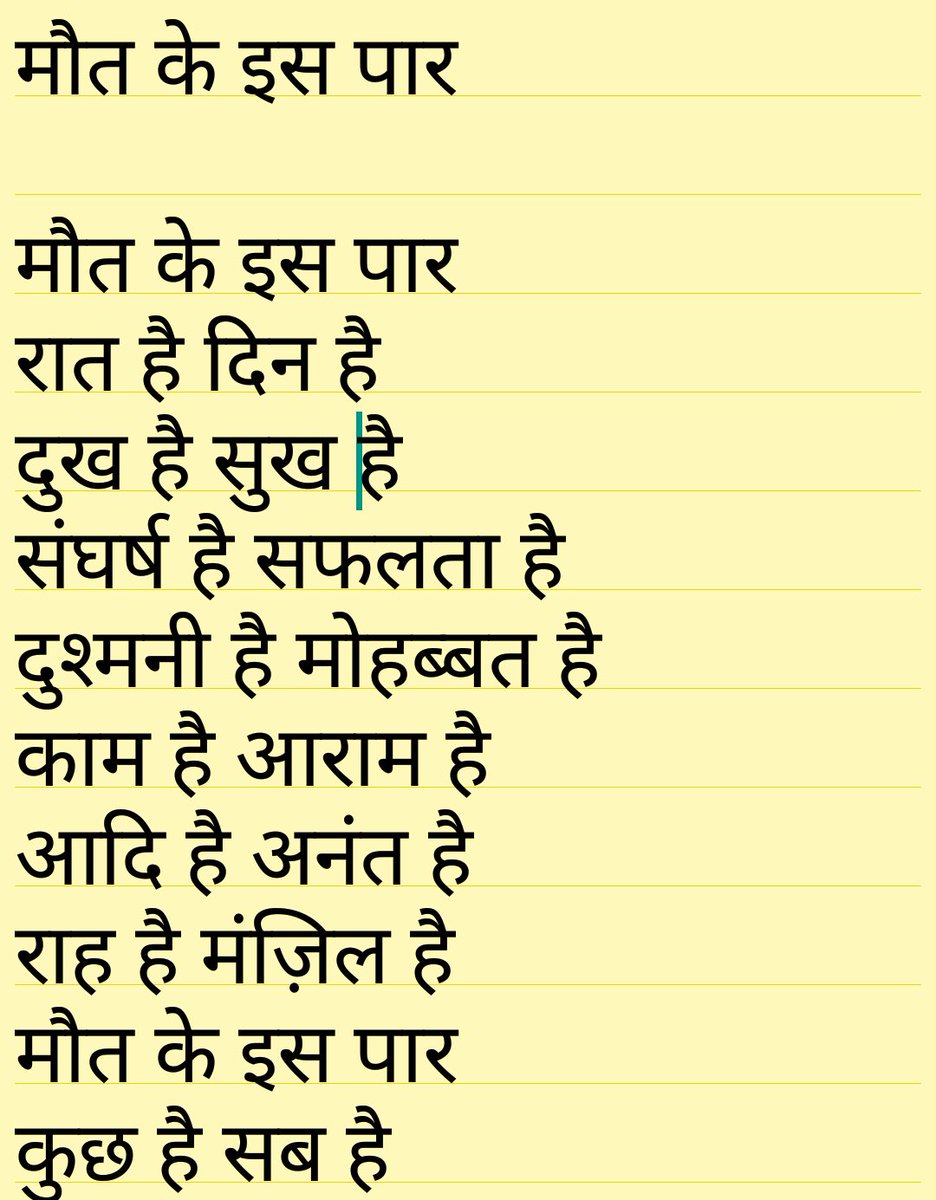 मौत के इस पार
मौत के इस पार
रात है दिन है
दुख है सुख है
संघर्ष है सफलता है
दुश्मनी है मोहब्बत है
काम है आराम है
आदि है अनंत है
राह है मंज़िल है
मौत के इस पार
कुछ है सब है